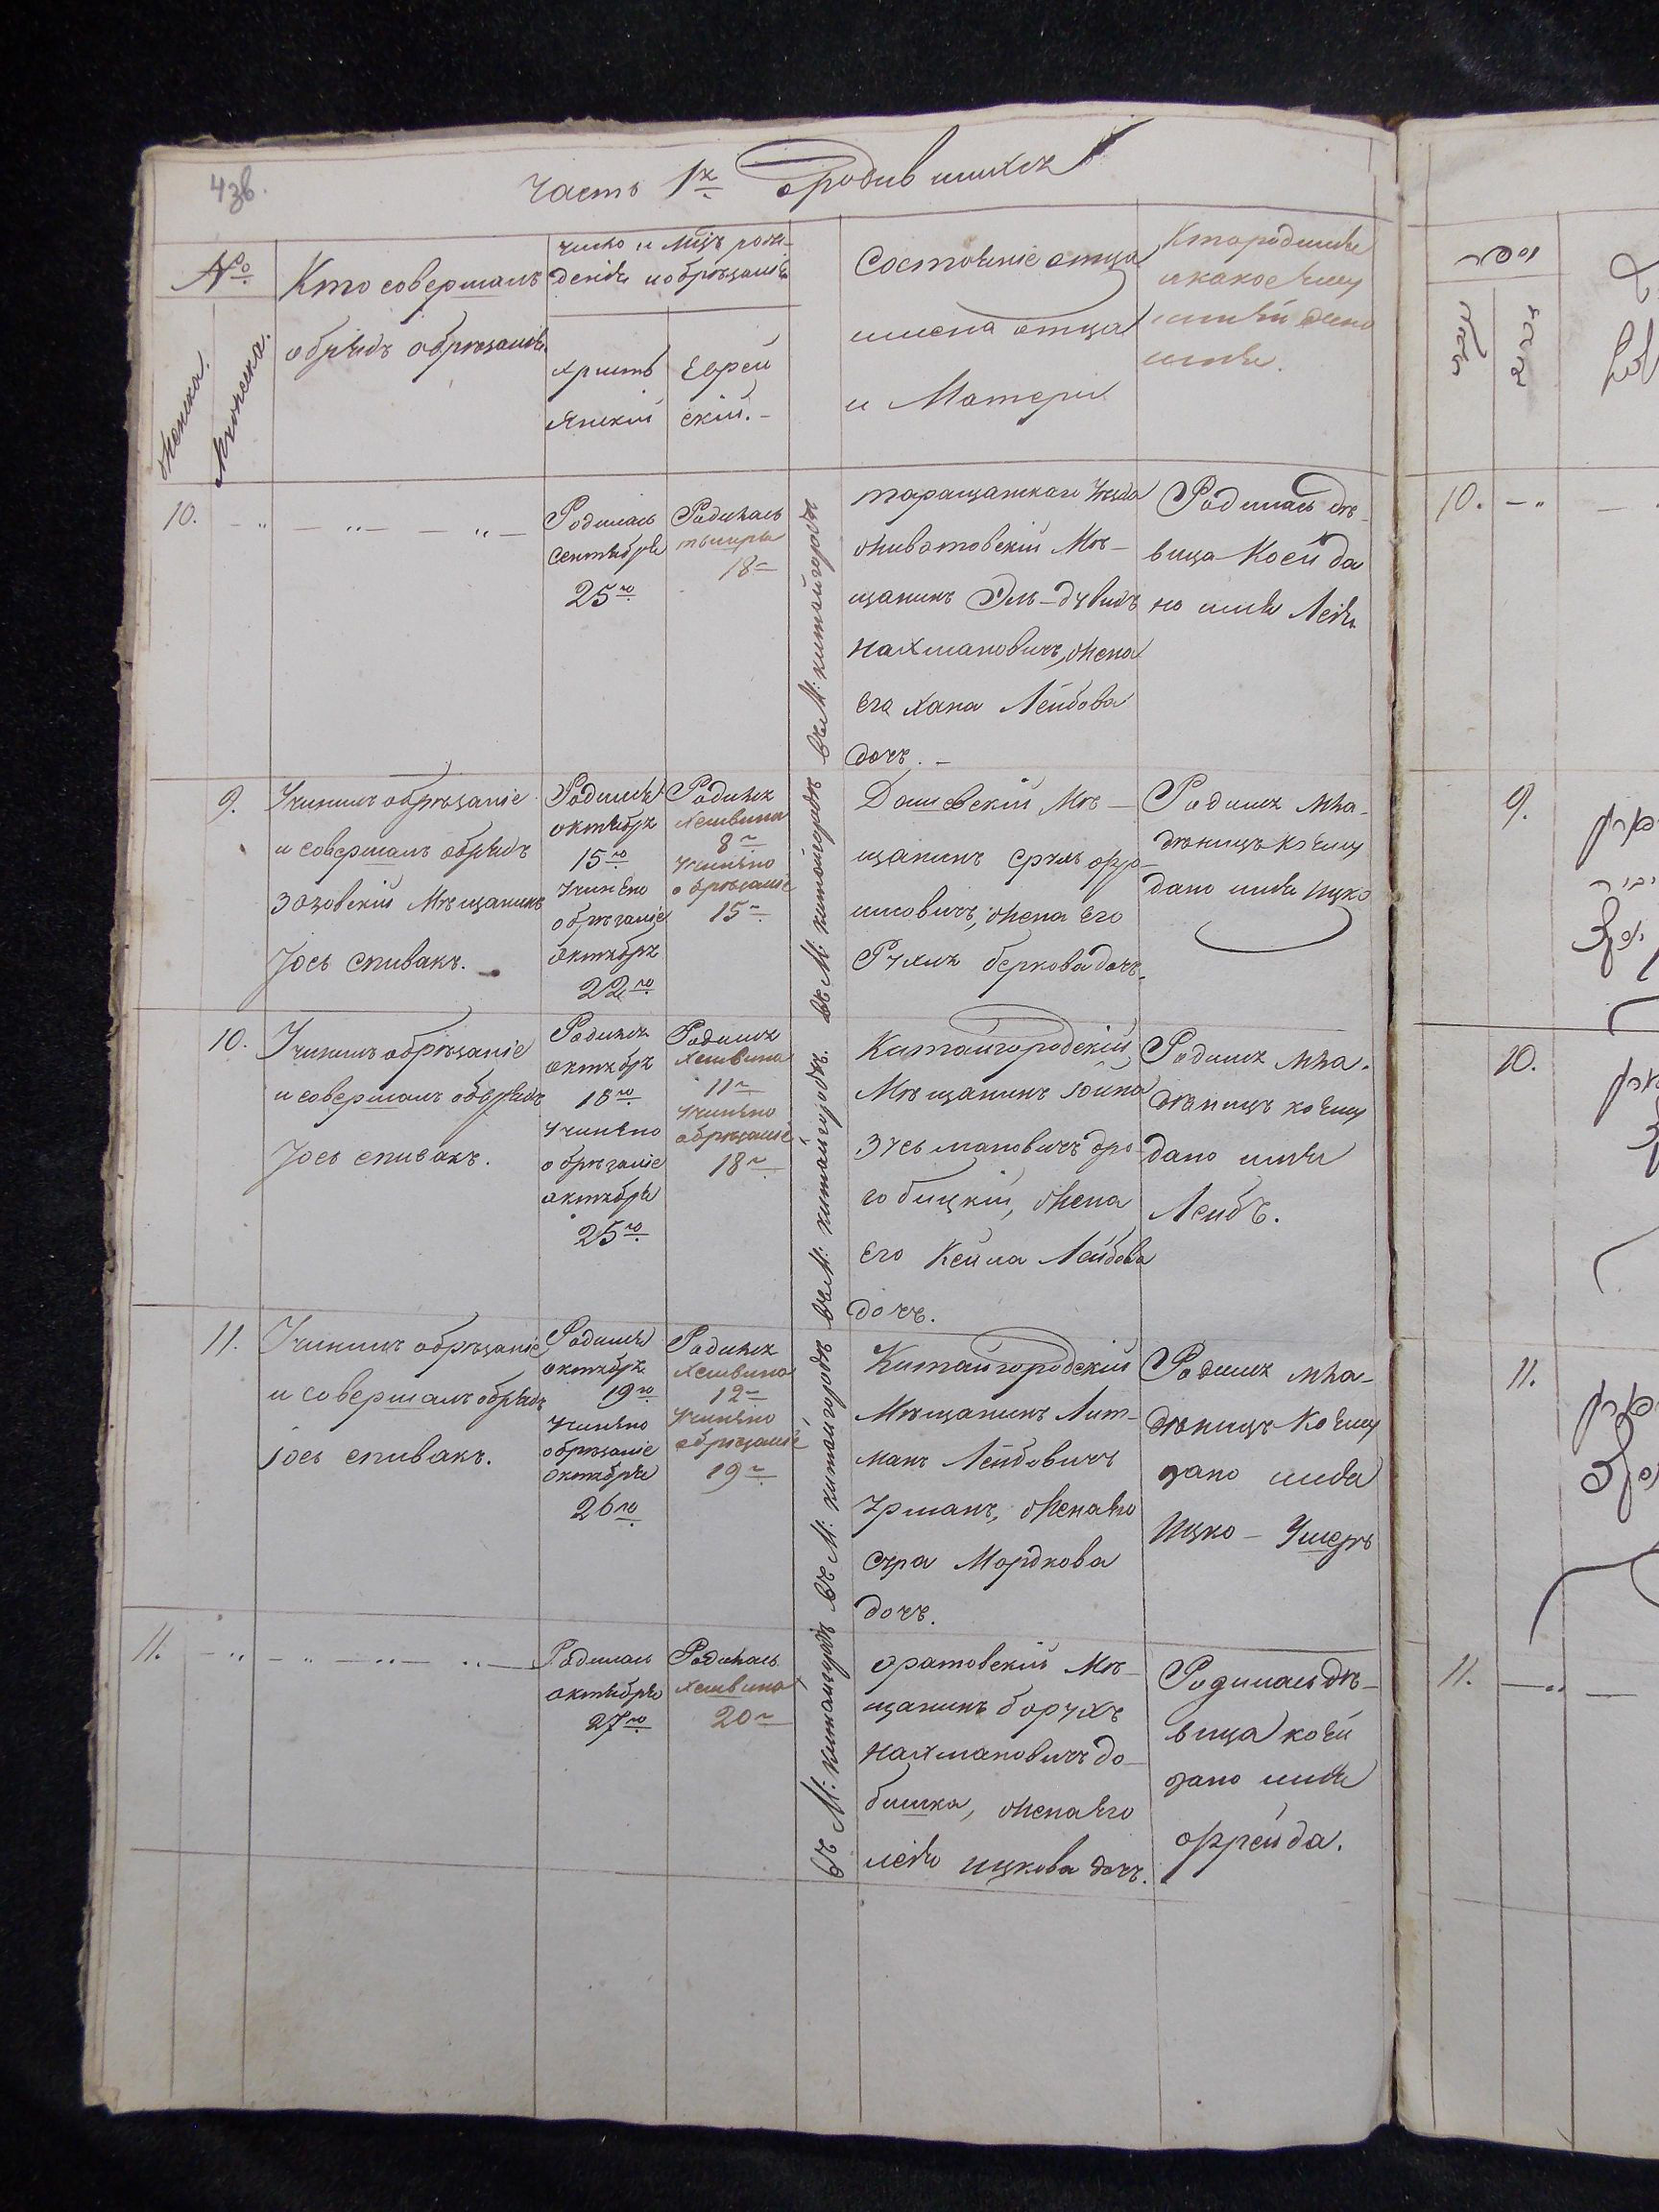 43в.
Часть 1я о родившихся
№о
Кто совершалъ
обрядъ обрезанія
число и мцъ рож-
денія и обрезанія
христі
янскій
Еврей
скій. –
Состояніе отца
имена отца
и Матери
Кто родился
и какое ему
имя.
женска.
Мужеска.
10.
Родилась
сентября
25го
Родилась
тышры
18–
въ М: китайгородѣ
таращанскаго Уезда
животовскій Мѣ–
щанинъ Эль–дувидъ
нахмановичъ, жена
его хана Лейбова
дочъ. –
Родилась дѣ–
вица Коей да
но имя Лея
9.
Учинилъ обрѣзаніе
и совершалъ обрядъ
зозовскій Мѣщанинъ
Іось спивакъ.
Родился
октября
15го
Учинено
обрѣзаніе
Октября
22го
Родился
хешвина
8–
Учинено
обрѣзаніе
15–
въ М: китайгородѣ
Дашевскій Мѣ–
щанинъ сруль фро–
имовичъ, жена его
Рухля беркова дочъ.
Родился мла–
дѣницъ коему
дано имя Ицко
10.
Учинилъ обрѣзаніе
и совершалъ обдрядъ
Іось спивакъ.
Родился
октября
18го
Учинено
обрѣзаніе
октября
25го
Родился
хешвина
11–
Учинено
обрѣзаніе
18–
въ М: китайгородѣ
Китайгородскій
Мѣщанинъ іойна
зусьмановичъ дро–
гобицкій, жена
Его Кейла Лейбова
дочъ.
Родился мла–
дѣницъ коему
дано имя
Лейбъ.
11.
Учинилъ обрѣзаніе
и совершалъ обрядъ
іось спивакъ.
Родился
октября
19го
Учинено
обрѣзаніе
октября
26го
Родился
хешвина
12–
Учинено
обрѣзаніе
19–
въ М: китайгородѣ
Китайгородскій
Мѣщанинъ Лит–
манъ Лейбовичъ
Урманъ, жена его
сура Мордкова
дочъ.
Родился мла–
дѣницъ Коему
дано имя
Ицко – Ушеръ
11.
Родилась
октября
27го
Родилась
хешвина
20–
въ М: китайгородѣ
оратовскій Мѣ–
щанинъ борухъ
нахмановичъ до–
бишка, жена его
лея ицкова дочъ.
Родилась дѣ–
вица коей
дано имя
фрейда.
10.
9.
10.
11.
11.